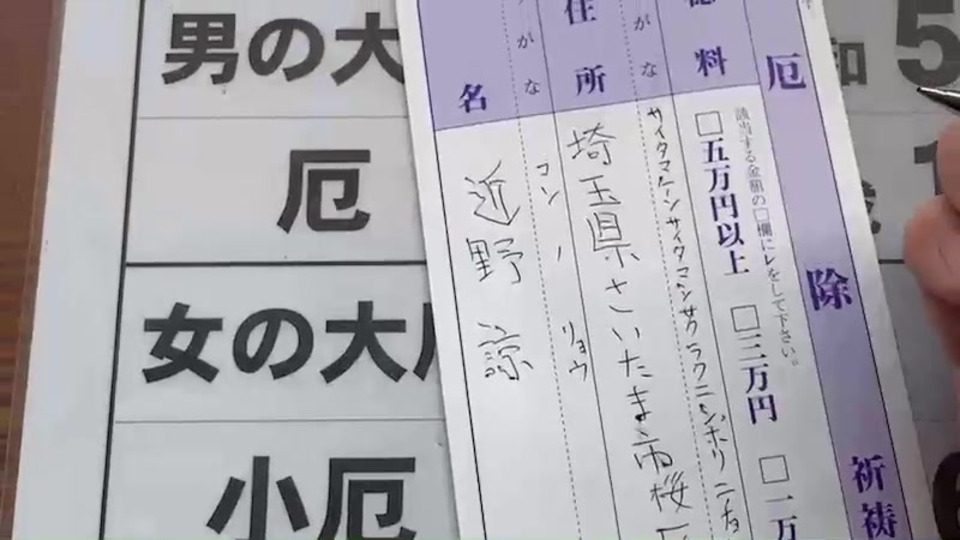 男の大
厄
女の大
小厄
和5
厄除祈祷
料
該当する金額の□欄にレをして下さい。
□五万円以上 □三万円 □一万
がな
サイタマケンサイタマシサクラク
住所
埼玉県さいたま市桜
がな
コンノ リョウ
名
近野 諒